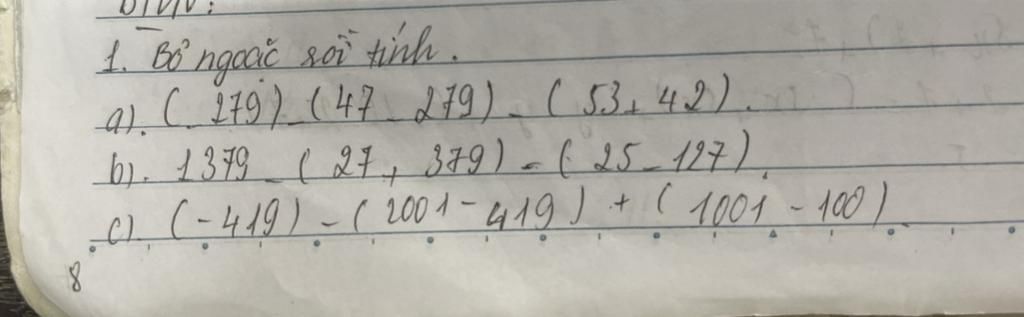 BTVN:
1. Bỏ ngoặc rồi tính.
a). (- 279) - (47 - 279) - (53 + 42).
b). 1379 - (27 + 379) - (25 - 127).
c). (-419) - (2001 - 419) + (1001 - 100)
8